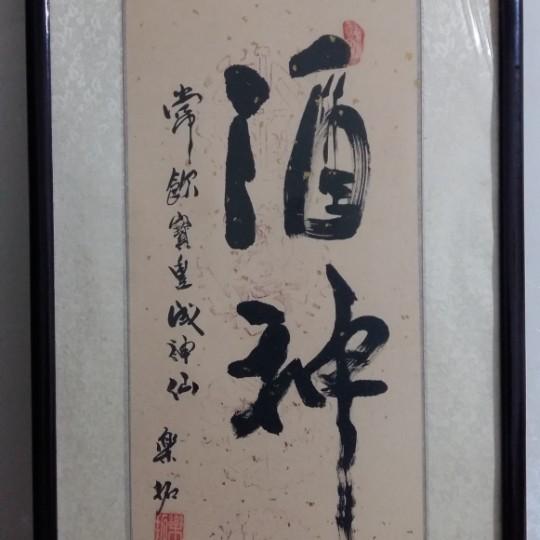 酒神
常飲寶豊成神仙
樂拓